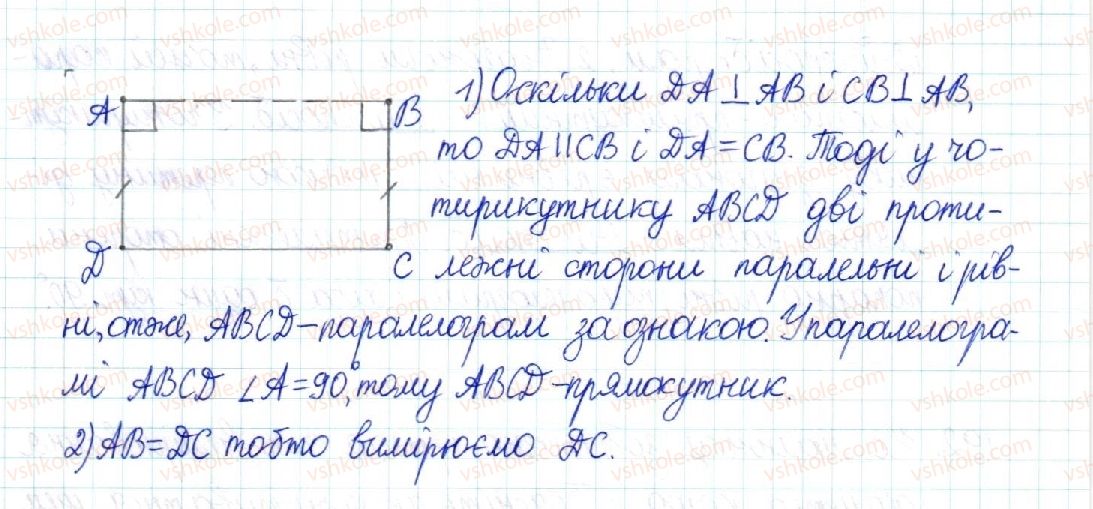 A
B
D
C
1) Оскільки DA⊥AB і CB⊥AB,
то DA∥CB і DA=CB. Тоді у чо-
тирикутнику ABCD дві проти-
лежні сторони паралельні і рів-
ні, отже, ABCD–паралелограм за ознакою. У паралелогра-
мі ABCD ∠A=90°, тому ABCD–прямокутник.
2) AB=DC тобто вимірюємо DC.
vshkole.com